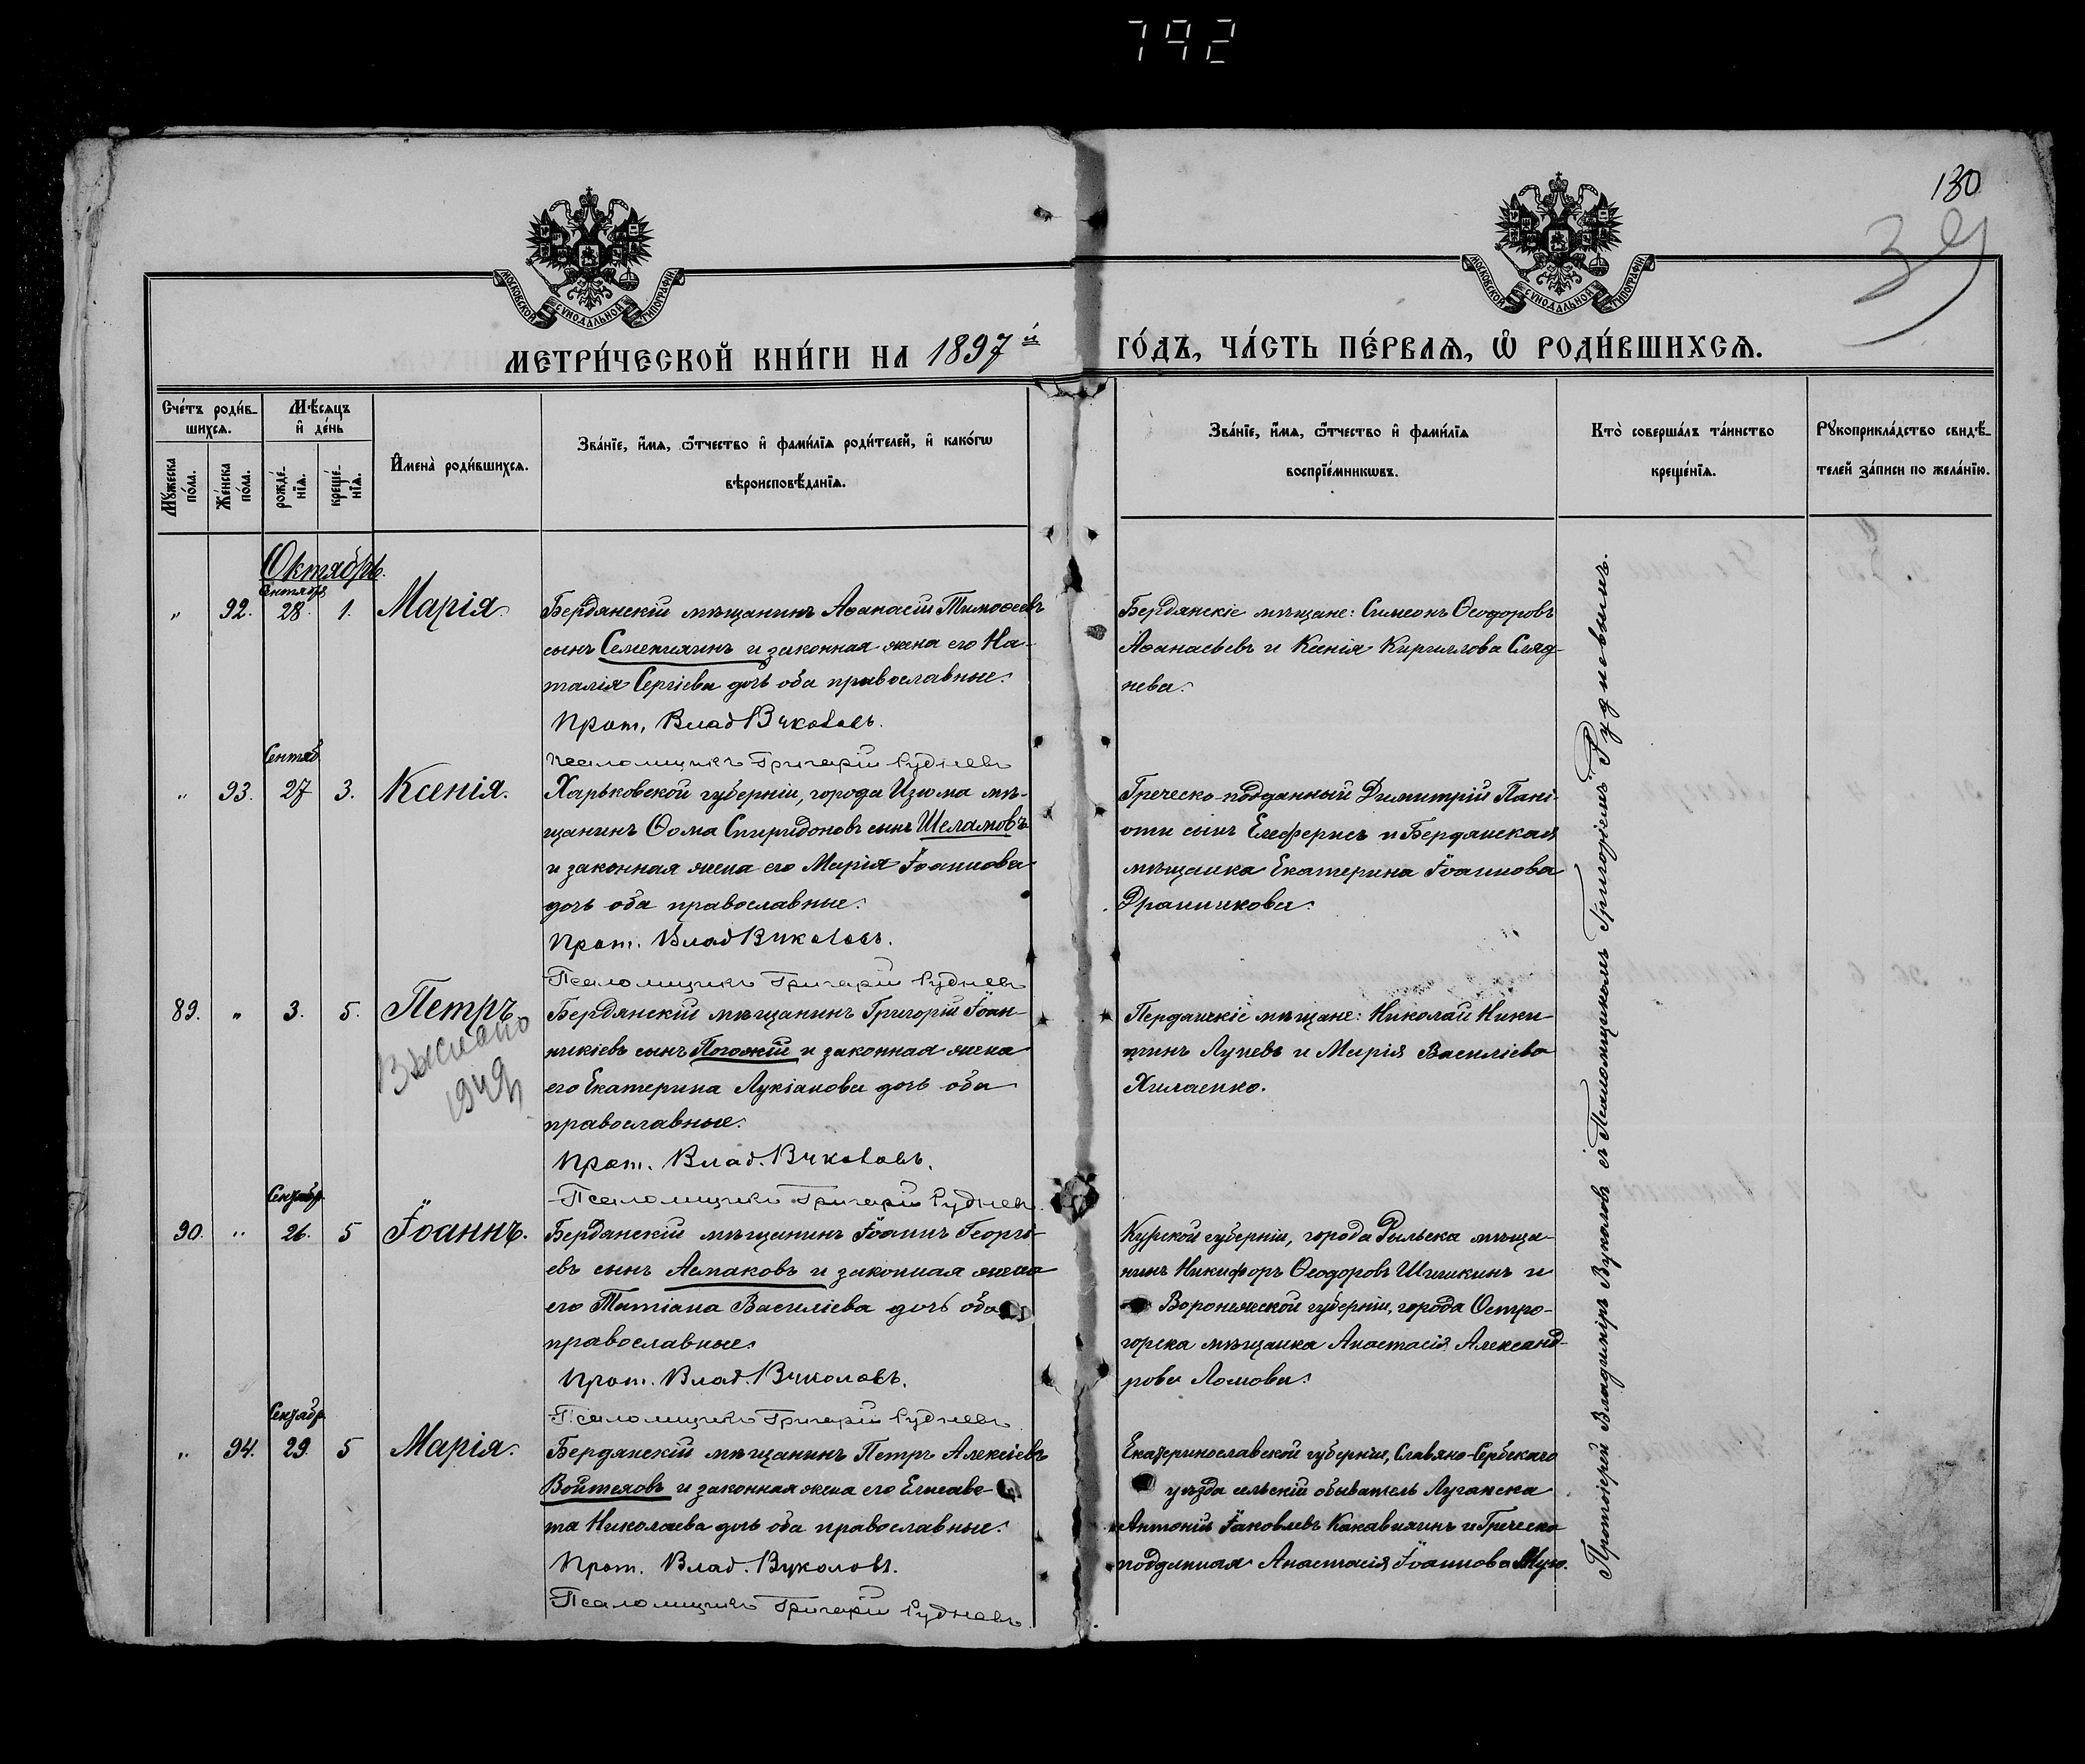 792
130
39
МОСКОВСКОЙ СѴНОДАЛЬНОЙ ТИПОГРАФІИ
МОСКОВСКОЙ СѴНОДАЛЬНОЙ ТИПОГРАФІИ
МЕТРИ́ЧЕСКОЙ КНИ́ГИ НА 1897й ГО́ДЪ, ЧА́СТЬ ПЕ́РВАѦ, Ѡ РОДИ́ВШИХСѦ.
Сче́тъ роди́в-
шихсѧ.
Мѣ́сѧцъ
и де́нь
Мꙋ́жеска
по́ла.
Же́нска
по́ла.
рожде́-
нїѧ.
креще́-
нїѧ.
И҆мена̀ роди́вшихсѧ.
Зва́нїе, и҆́мѧ, ѻ҆́тчество и҆ фами́лїѧ роди́телей, и҆ како́гѡ
вѣроисповѣ́данїѧ.
Зва́нїе, и҆́мѧ, ѻ҆́тчество и҆ фами́лїѧ
воспрїе́мникѡвъ.
Кто̀ соверша́лъ та́инство
креще́нїѧ.
Рꙋкоприкла́дство свидѣ́-
телей за́писи по жела́нїю.
Октябрь.
Сентябр
„ 92. 28. 1. Марія.
Бердянскій мѣщанинъ Аѳанасій Тимоѳеевъ
сынъ Семенихинъ и законная жена его На-
талія Сергіева дочь оба православные.
Прот. Влад Вуколовъ.
Псаломщикъ Григорій Рудневъ
Бердянскіе мѣщане: Симеонъ Ѳеодоровъ
Аѳанасьевъ и Ксенія Кириллова Сляд-
нева.
Сентяб
„ 93. 27 3. Ксенія.
Харьковской губерніи, города Изюма мѣ-
щанинъ Ѳома Спиридоновъ сынъ Шеламовъ
и законная жена его Марія Іоаннова
дочь оба православные.
Прот. Влад Вуколовъ.
Псаломщикъ Григорій Рудневъ
Греческо-подданный Димитрій Пані-
оти сынъ Елеферисъ и Бердянская
мѣщанка Екатерина Іоаннова
Драничкова.
89. „ 3. 5. Петръ
1949
Бердянскій мѣщанинъ Григорій Іоан-
никіевъ сынъ Погожій и законная жена
его Екатерина Лукіанова дочь оба
православные.
Прот. Влад. Вуколовъ.
Псаломщикъ Григорій Рудневъ.
Бердянскіе мѣщане: Николай Ники-
тинъ Луневъ и Марія Василіева
Хилаенко.
Сентябр
90. „ 26. 5 Іоаннъ.
Бердянскій мѣщанинъ Іоаннъ Георгі-
евъ сынъ Асмаковъ и законная жена
его Татіана Василіева дочь оба
православные.
Прот. Влад. Вуколовъ.
Псаломщикъ Григорій Рудневъ
Курской губерніи, города Рыльска мѣща-
нинъ Никифоръ Ѳеодоровъ Шишкинъ и
Воронежской губерніи, города Остро-
горска мѣщанка Анастасія Александ-
рова Ломова.
Сентябр
„ 94. 29. 5 Марія.
Бердянскій мѣщанинъ Петръ Алексіевъ
Войтеховъ и законная жена его Елисаве-
та Николаева дочь оба православные.
Прот. Влад. Вуколовъ.
Псаломщикъ Григорій Рудневъ
Екатеринославской губерніи, Славяно-Сербскаго
уѣзда сельскій обыватель Луганска
Антоній Іаковлевъ Канавихинъ и Греческо
подданная Анастасія Іоаннова
Протоіерей Владиміръ Вуколовъ съ Псаломщикомъ Григоріемъ Рудневымъ.